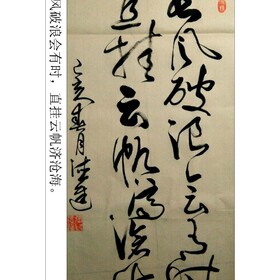 长风破浪会有时
直挂云帆济沧海
己亥春月
风破浪会有时，直挂云帆济沧海。